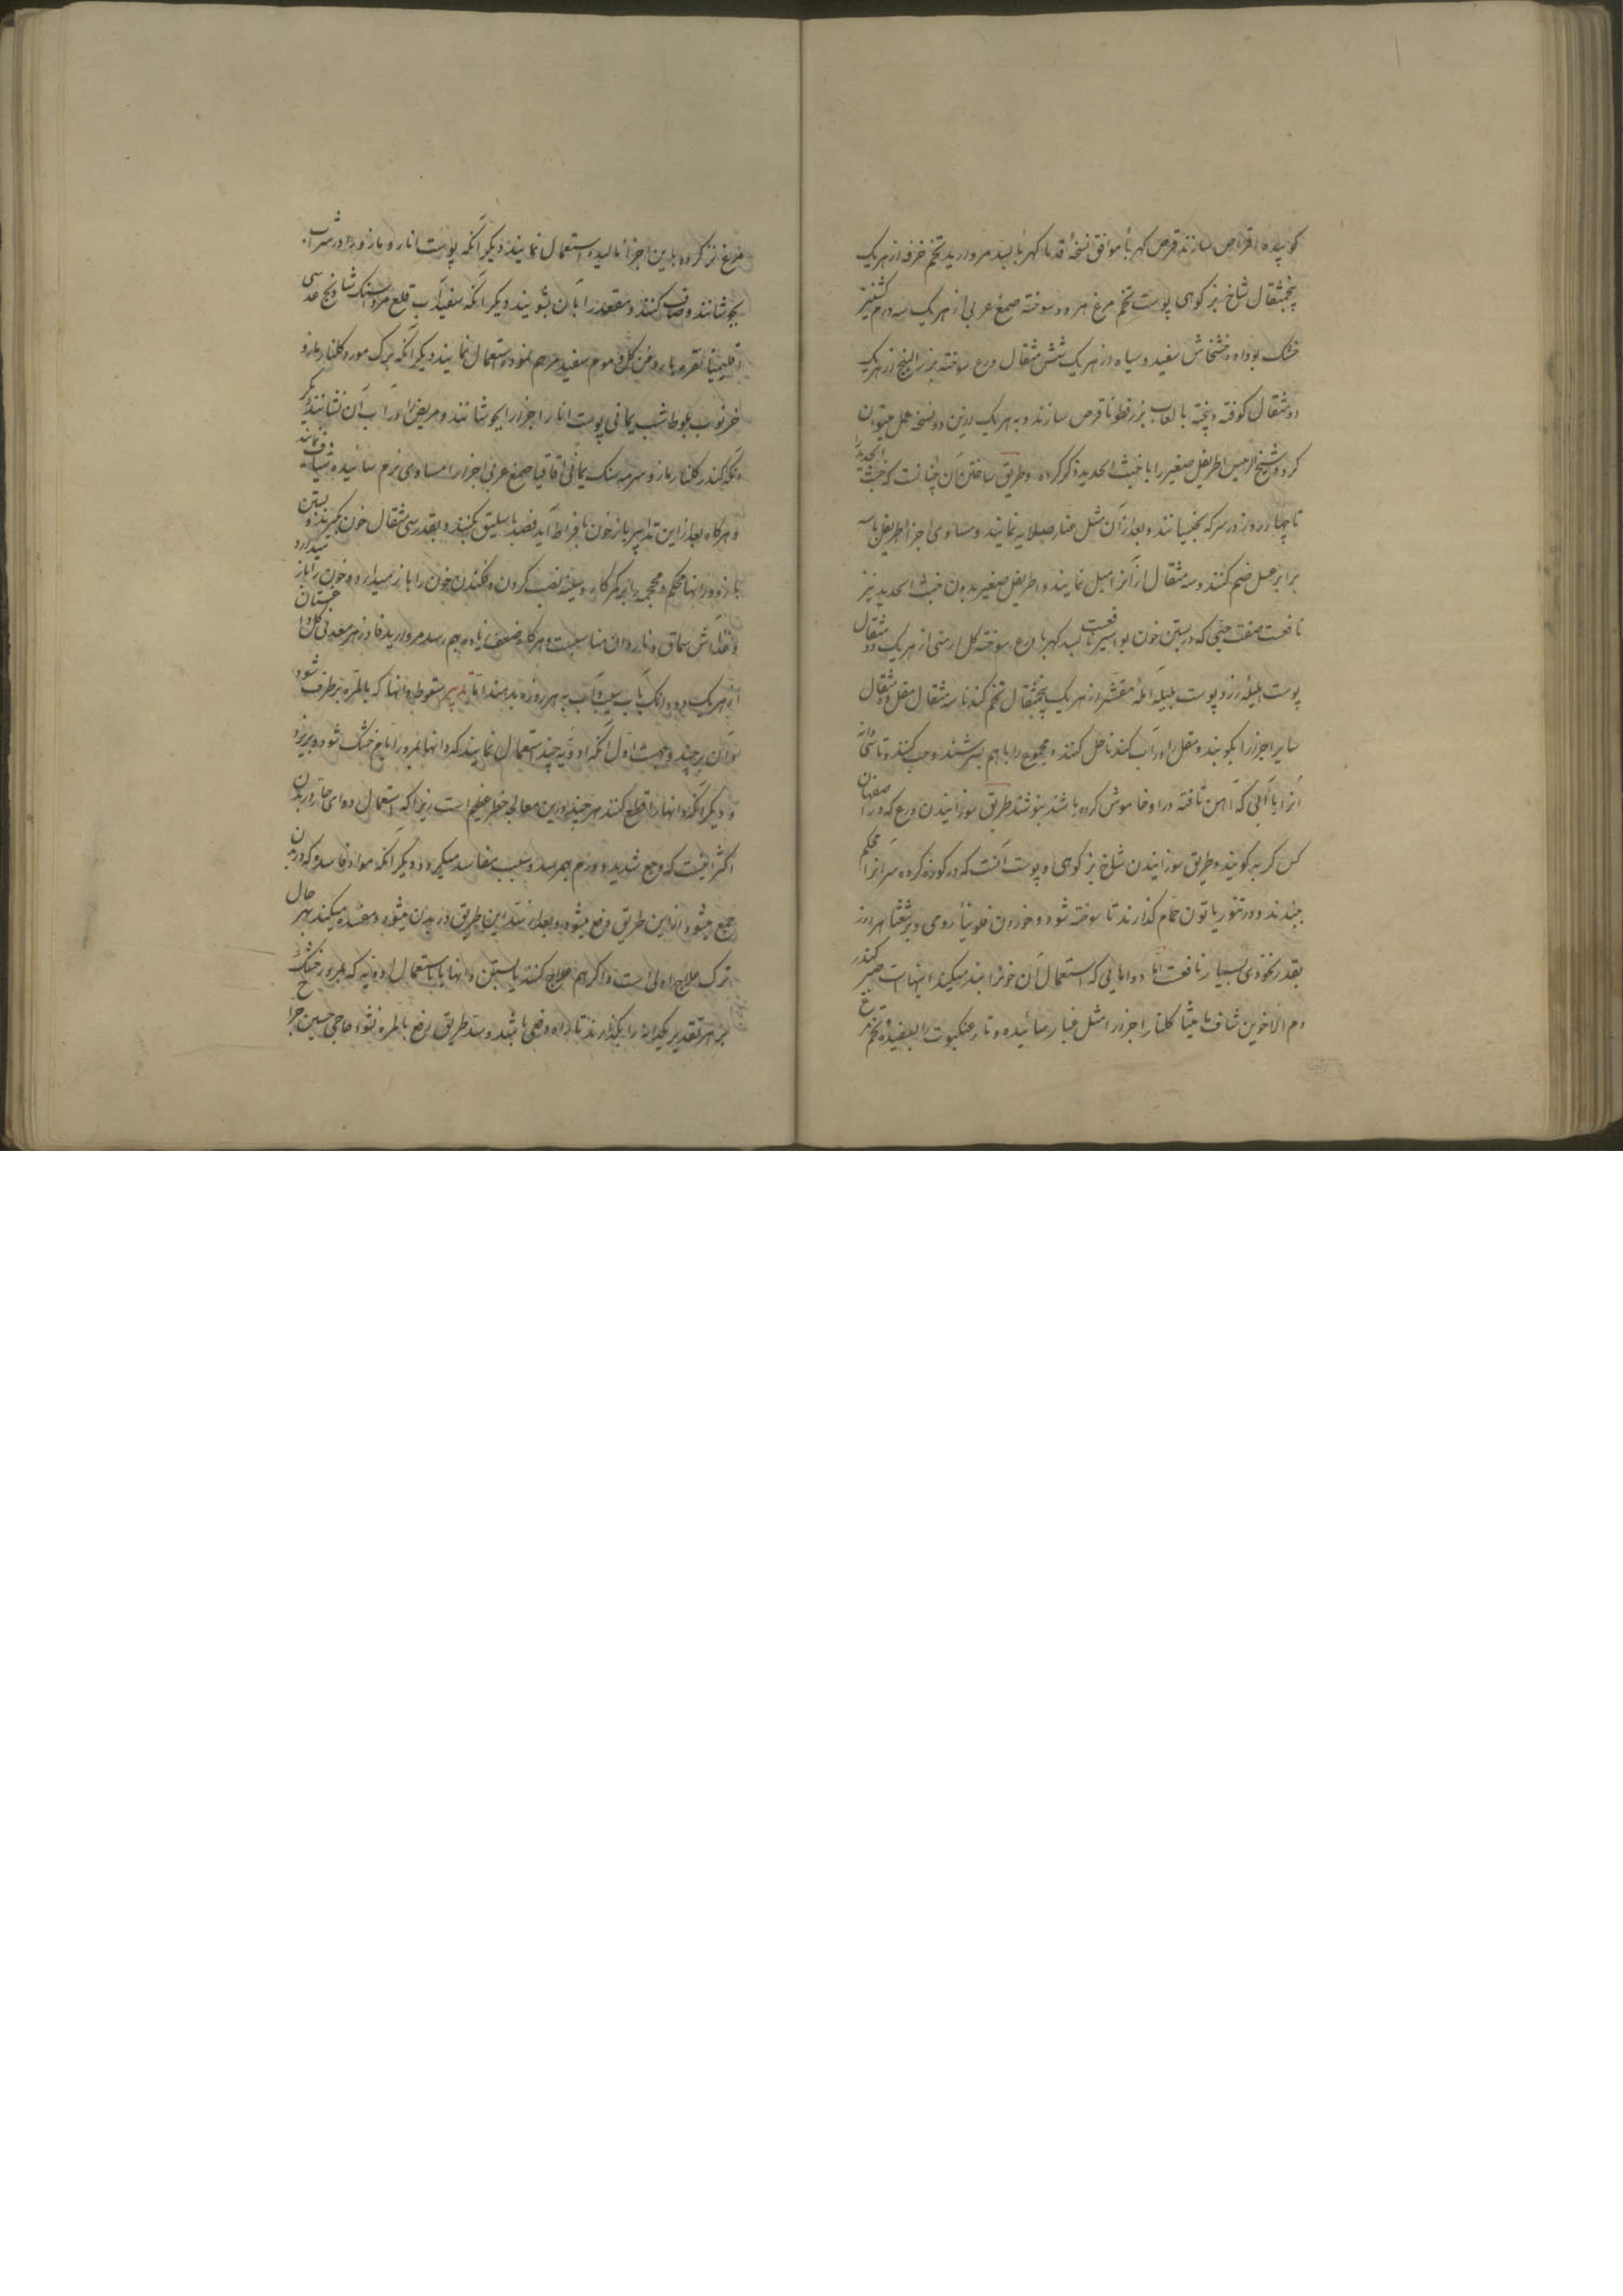 کوبیده اقراص سازند قرص کهربا موافق نسخهٔ قدما کهربا بسد مروارید تخم خرفه از هر یک
پنجمثقال شاخ بز کوهی پوست تخم مرغ هر دو سوخته صمغ عربی از هر یک سه درم کشنیز
خشک بو داده خشخاش سفید و سیاه از هر یک شش مثقال ودع سوخته بزر البنج از هر یک
دو مثقال کوفته و بیخته با لعاب بزرقطونا قرص سازند و به هر یک ازین دو نسخه عمل میتوان
کرد و شیخ الرئیس اطریفل صغیر را با خبث الحدید ذکر کرده و طریق ساختن آن چنانست که خبث الحدید را
تا چهارده روز در سرکه بخیسانند و بعد از آن مثل غبار صلایه نمایند و مساوی اجزا اطریفل با سه
برابر عسل ضم کنند و سه مثقال از آنرا میل نمایند و اطریفل صغیر بدون خبث الحدید نیز
نافعست صفت حبی که در بستن خون بواسیر نافعست بسد کهربا ودع سوخته گل ارمنی از هر یک دو مثقال
پوست هلیلهٔ زرد پوست بلیله آمله مقشر از هر یک پنجمثقال تخم کندنا سه مثقال مقل ده مثقال
سایر اجزا را بکوبند و مقل را در آب کندنا حل کنند و مجموع را با هم بسرشند و حب کنند و تا سی دانه
آنرا با آبی که آهن تافته در او خاموش کرده باشند بنوشند طریق سوزانیدن ودع که در اصفهان
کس گربه گویند و طریق سوزانیدن شاخ بز کوهی و پوست آنست که در کوزه کرده سر آنرا محکم
ببندند و در تنور یا تون حمام گذارند تا سوخته شود و خوردن فلونیا رومی و برشعثا هر روز
بقدر نخودی بسیار نافعست اما دواهایی که استعمال آن خونرا بند میکند اینهاست صبر کندر
دم الاخوین شاف مامیثا گلنار اجزا را مثل غبار سائیده و تار عنکبوت را بسفیده تخم مرغ
مرغ تر کرده باین اجزا مالیده استعمال نمایند دیگر آنکه پوست انار و مازو را در شراب
بجوشانند و صاف کنند و مقعد را بآن بشویند دیگر آنکه سفیداب قلع مرداسنک شادنج عدسی
اقلیمیا نقره با روغن گل و موم سفید مرهم نموده استعمال نمایند دیگر آنکه برک مورد گلنار مازو
خرنوب بلوط شب یمانی پوست انار اجزا را بجوشانند و مریض را در آب آن نشانند دیگر
آنکه کندر گلنار مازو سرمه سنک یمانی اقاقیا صمغ عربی اجزا را مساوی نرم سائیده شیاف نمایند
و هرگاه بعد از این تدابیر باز خون بافراط آید فصد باسلیق بکنند و بقدر سی مثقال خون بگیرند و بستن
بازو و رانها محکم و محجمه بر کمرگاه و سینه نصب کردن و فکندن خون را باز میدارد و خون را باز میدارد
و غذا آش سماق و ناردان مناسبست و هرگاه ضعف زیاده بهم رسد مروارید فادزهر معدنی گل داغستان
از هر یک دو دانک بآب سیب و آب به هر روزه بدهند اما تدبیر سقوط دانها که بالمره برطرف شود
و آن بر چند وجهست اول آنکه ادویه چند استعمال نمایند که دانها بمرور ایام خشک شود و بریزد
و دیگر آنکه دانها را قطع کنند هر چند درین معالجه خطر عظیم است زیرا که استعمال دوای حار در بدن
اکثر اینست که وجع شدید و ورم بهم رسد و سبب مفاسد میگردد و دیگر آنکه مواد فاسد که در بدن
جمع میشود از این طریق دفع میشود و بعد از سد این طریق در بدن میشود و مفسده میکند بهر حال
ترک علاج اولی است و اگر هم علاج کنند یا بستن دانها یا باستعمال ادویه که بمرور خشک شود
بر هر تقدیر یکدانه را بگذارند تا راه دفعی باشد و سد طریق دفع بالمره نشود حاجی حسین جراح